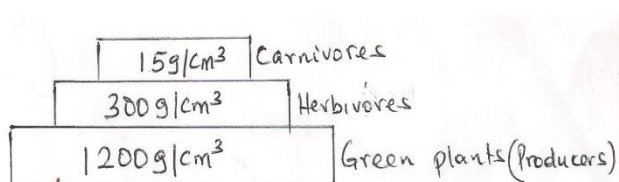 15g/cm³ Carnivores
300g/cm³ Herbivores
1200g/cm³ Green plants(Producers)